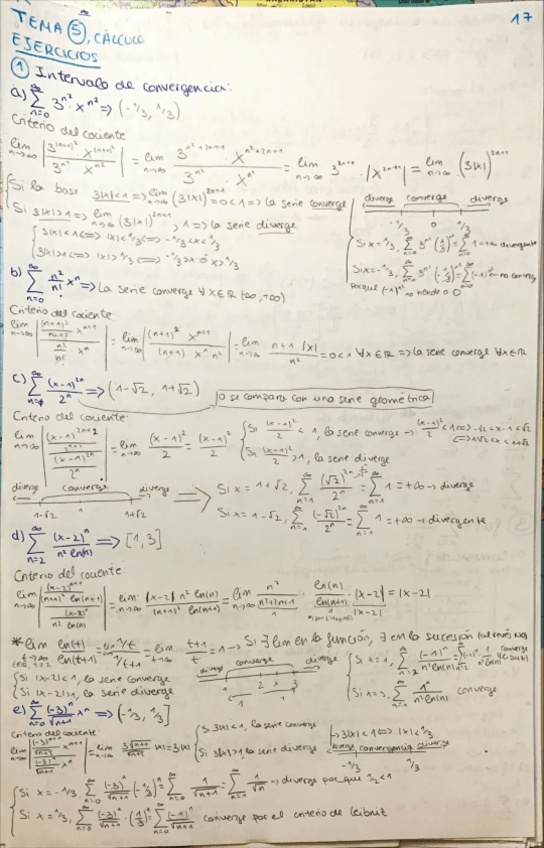 TEMA ⑤, CÁLCULO
17
EJERCICIOS
① Intervalo de convergencia:
a) ∑_{n=0}^{∞} 3^{n²} · x^{n²} => (-1/3, 1/3)
Criterio del cociente
lim_{n→∞} |3^{(n+1)²} x^{(n+1)²} / 3^{n²} x^{n²}| = lim_{n→∞} 3^{n²+2n+1} · x^{n²+2n+1} / 3^{n²} · x^{n²} = lim_{n→∞} 3^{2n+1} · |x^{2n+1}| = lim_{n→∞} (3|x|)^{2n+1}
Si la base 3|x| < 1 => lim_{n→∞} (3|x|)^{2n+1} = 0 < 1 => la serie converge
Si 3|x| > 1 => lim_{n→∞} (3|x|)^{2n+1} > 1 => la serie diverge
3|x| < 1 <=> |x| < 1/3 <=> -1/3 < x < 1/3
3|x| > 1 <=> |x| > 1/3 <=> -1/3 > x ó x > 1/3
diverge converge diverge
-1/3 0 1/3
Si x = 1/3, ∑_{n=0}^{∞} 3^{n²} (1/3)^{n²} = ∑_{n=0}^{∞} 1 = +∞ divergente
Si x = -1/3, ∑_{n=0}^{∞} 3^{n²} (-1/3)^{n²} = ∑ (-1)^{n²} = no converge
porque (-1)^{n²} no tiende a 0
b) ∑_{n=0}^{∞} n²/n! x^n => La serie converge ∀x∈ℝ (-∞, +∞)
Criterio del cociente
lim_{n→∞} |(n+1)²/(n+1)! x^{n+1} / n²/n! · x^n| = lim_{n→∞} |(n+1)² x^{n+1} / (n+1) x^n n²| = lim_{n→∞} n+1 |x| / n² = 0 < 1 ∀x∈ℝ => la serie converge ∀x∈ℝ
c) ∑ (x-1)^{2n} / 2^n => (1-√2, 1+√2)
o se compara con una serie geométrica
Criterio del cociente:
lim_{n→∞} |(x-1)^{2n+2} / 2^{n+1} / (x-1)^{2n} / 2^n| = lim_{n→∞} (x-1)²/2 = (x-1)²/2
Si (x-1)²/2 < 1, la serie converge → (x-1)²/2 < 1 <=> -√2 < x-1 < √2
<=> 1-√2 < x < 1+√2
Si (x-1)²/2 > 1, la serie diverge
diverge converge diverge
1-√2 1 1+√2
=> Si x = 1+√2, ∑_{n=1}^{∞} (√2)^{2n} / 2^n = ∑_{n=1}^{∞} 1 = +∞ → diverge
Si x = 1-√2, ∑_{n=1}^{∞} (-√2)^{2n} / 2^n = ∑_{n=1}^{∞} 1 = +∞ → divergente
d) ∑_{n=2}^{∞} (x-2)^n / n² ln(n) => [1, 3]
Criterio del cociente:
lim_{n→∞} |(x-2)^{n+1} / (n+1)² ln(n+1) / (x-2)^n / n² ln(n)| = lim_{n→∞} |x-2| n² ln(n) / (n+1)² ln(n+1) = lim_{n→∞} n² / n²+2n+1 · ln(n) / ln(n+1) · |x-2| = |x-2|
* lim_{t→∞} ln(t) / ln(t+1) = lim 1/t / 1/t+1 = lim_{t→∞} t+1 / t = 1 → Si ∃ lim en la función, ∃ en la sucesión
Si |x-2| < 1, la serie converge
Si |x-2| > 1, la serie diverge
diverge converge diverge
1 2 3
Si x = 1, ∑_{n=2}^{∞} (-1)^n / n² ln(n) converge (Leibniz)
Si x = 3, ∑_{n=2}^{∞} 1^n / n² ln(n) converge
e) ∑_{n=0}^{∞} (-3)^n / √(n+1) x^n => (-1/3, 1/3]
Criterio del cociente:
= 3|x|
Si 3|x| < 1, la serie converge → 3|x| < 1 <=> |x| < 1/3
Si 3|x| > 1 la serie diverge
diverge convergencia diverge
-1/3 1/3
Si x = -1/3, ∑_{n=0}^{∞} (-3)^n / √(n+1) (-1/3)^n = ∑_{n=0}^{∞} 1 / √(n+1) = ∑_{n=1}^{∞} 1/√n → diverge porque 1/2 < 1
Si x = 1/3, ∑_{n=0}^{∞} (-3)^n / √(n+1) (1/3)^n = ∑_{n=0}^{∞} (-1)^n / √(n+1) converge por el criterio de Leibniz